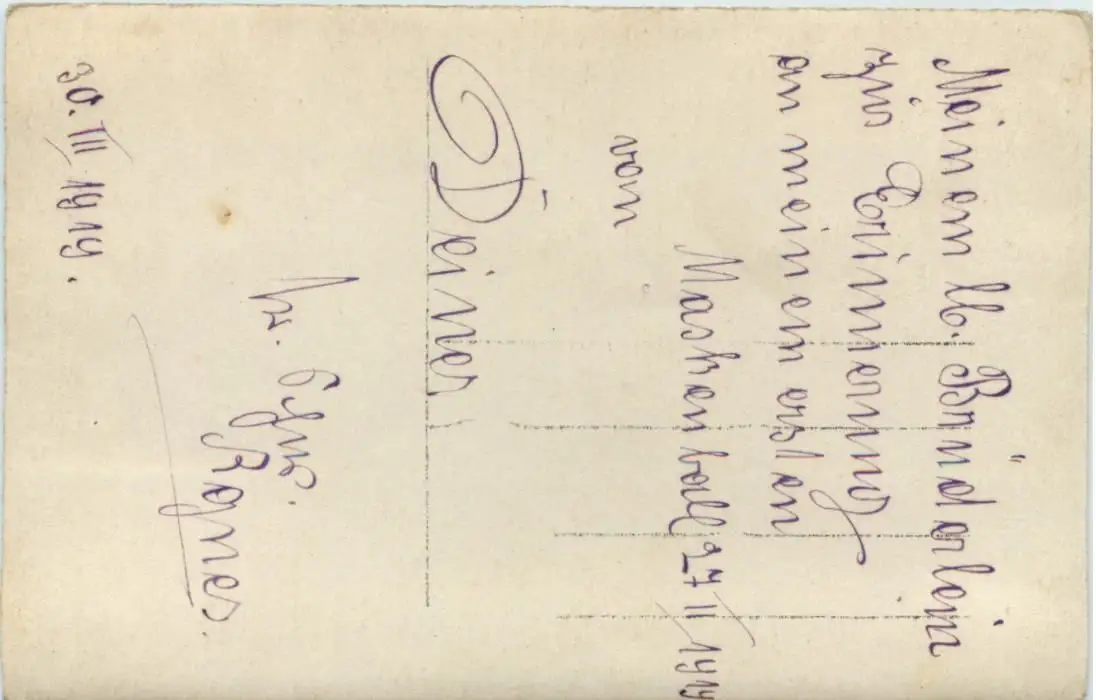 Meinem lb. Brüderlein
zur Erinnerung
an meinem ersten
Maskenball 27 II/1919
vom
Deiner
30. III 1919.